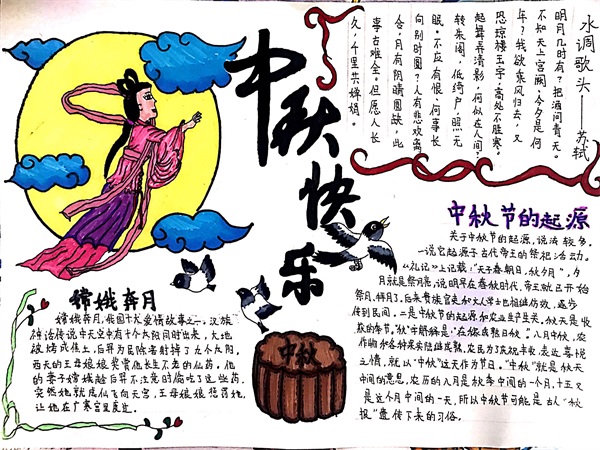 水调歌头——苏轼
明月几时有?把酒问青天。
不知天上宫阙,今夕是何
年?我欲乘风归去,又
恐琼楼玉宇,高处不胜寒。
起舞弄清影,何似在人间?
转朱阁,低绮户,照无
眠。不应有恨,何事长
向别时圆?人有悲欢离
合,月有阴晴圆缺,此
事古难全。但愿人长
久,千里共婵娟。
中秋快乐
嫦娥奔月
嫦娥奔月,我国十大爱情故事之一。汉族
神话传说中天空中有十个太阳同时出来,大地
被烤成焦土,后羿为民除害射掉了九个太阳,
西天的王母娘娘奖赏他长生不老的仙药。他
的妻子嫦娥趁后羿不注意时偷吃了这些药,
突然她就成仙飞向天宫,王母娘娘惩罚她,
让她在广寒宫里度过。
中秋
中秋节的起源
关于中秋节的起源,说法较多。
一说它起源于古代帝王的祭祀活动。
《礼记》上记载:"天子春朝日,秋夕月",夕
月就是祭月亮,说明早在春秋时代,帝王就已开始
祭月、拜月了。后来贵族官吏和文人学士也相继仿效,逐步
传到民间。二是中秋节的起源和农业生产有关。秋天是收
获的季节。"秋"字解释是:"庄稼成熟曰秋"。八月中秋,农
作物和各种果实陆续成熟,农民为了庆祝丰收,表达喜悦
之情,就以"中秋"这天作为节日。"中秋"就是秋天
中间的意思,农历的八月是秋季中间的一个月,十五又
是这个月中间的一天,所以中秋节可能是古人"秋
报"遗传下来的习俗。